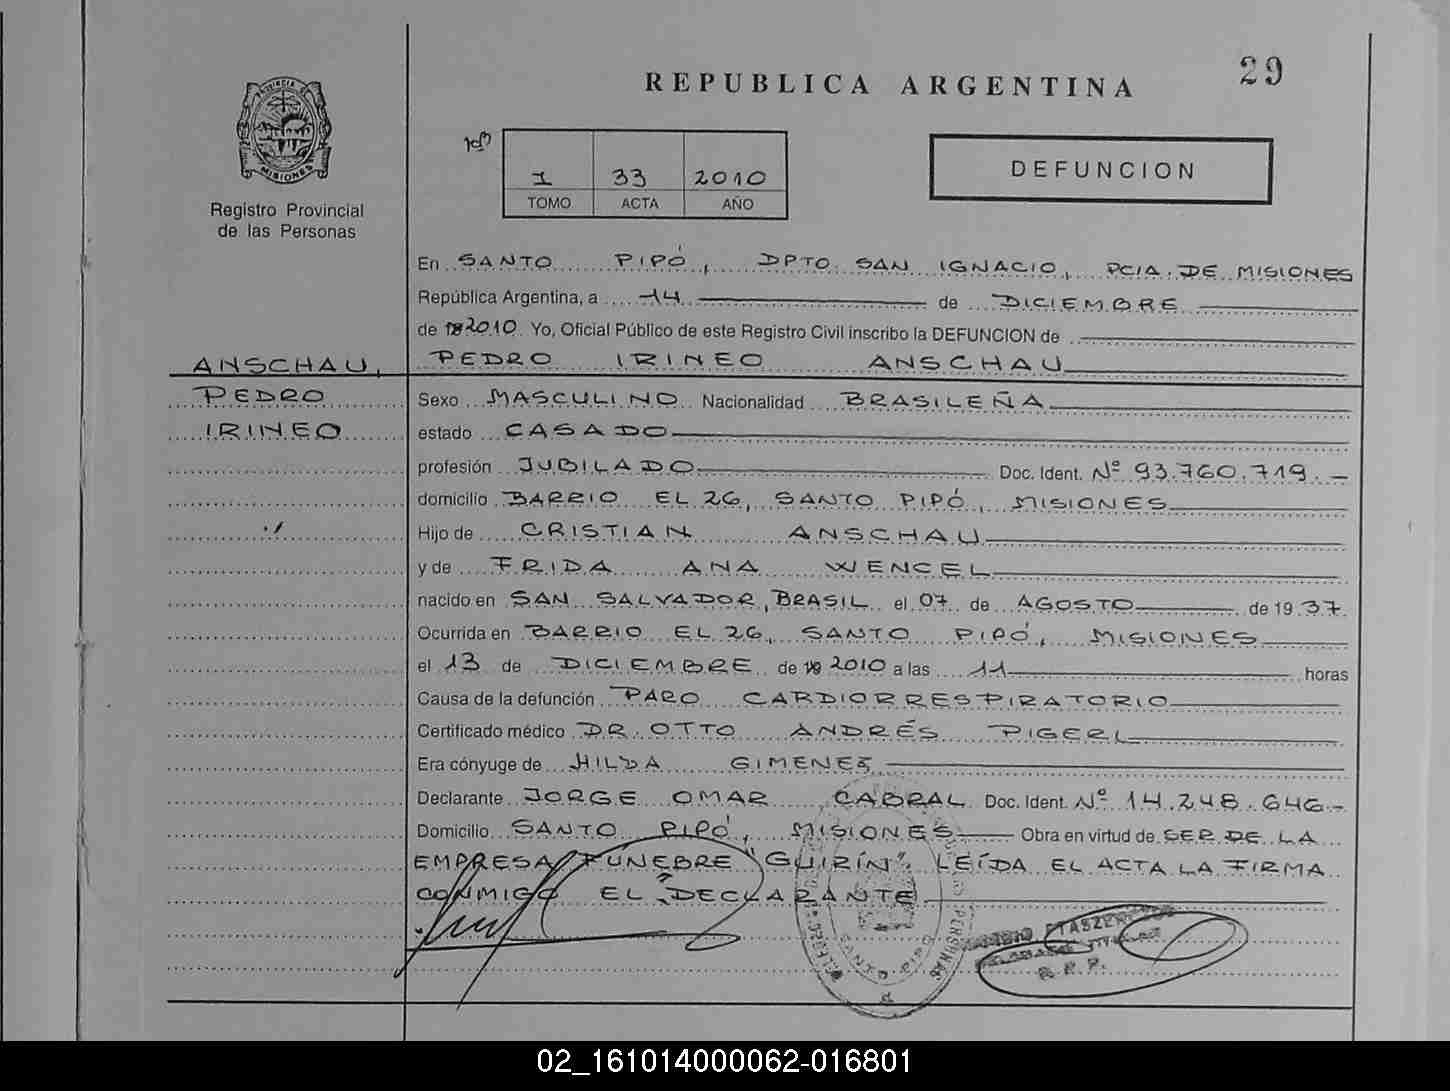 29
REPUBLICA ARGENTINA
PROVINCIA DE
MISIONES
Registro Provincial
de las Personas
1 33 2010
TOMO ACTA AÑO
DEFUNCION
En SANTO PIPÓ, DPTO SAN IGNACIO, PCIA. DE MISIONES
República Argentina, a 14 de DICIEMBRE
de 2010 Yo, Oficial Público de este Registro Civil inscribo la DEFUNCION de
PEDRO IRINEO ANSCHAU
ANSCHAU,
PEDRO
IRINEO
Sexo MASCULINO Nacionalidad BRASILEÑA
estado CASADO
profesión JUBILADO Doc. Ident. Nº 93.760.719.-
domicilio BARRIO EL 26, SANTO PIPÓ, MISIONES
Hijo de CRISTIAN ANSCHAU
y de FRIDA ANA WENCEL
nacido en SAN SALVADOR, BRASIL el 07 de AGOSTO de 1937
Ocurrida en BARRIO EL 26, SANTO PIPÓ, MISIONES
el 13 de DICIEMBRE de 2010 a las 11 horas
Causa de la defunción PARO CARDIORRESPIRATORIO
Certificado médico DR. OTTO ANDRÉS PIGERL
Era cónyuge de HILDA GIMENES
Declarante JORGE OMAR CABRAL Doc. Ident. Nº 14.248.646-
Domicilio SANTO PIPÓ, MISIONES Obra en virtud de SER DE LA
EMPRESA FÚNEBRE "GUIRÍN". LEÍDA EL ACTA LA FIRMA
CONMIGO EL DECLARANTE
SANTO PIPO
R.P.P.
02_161014000062-016801